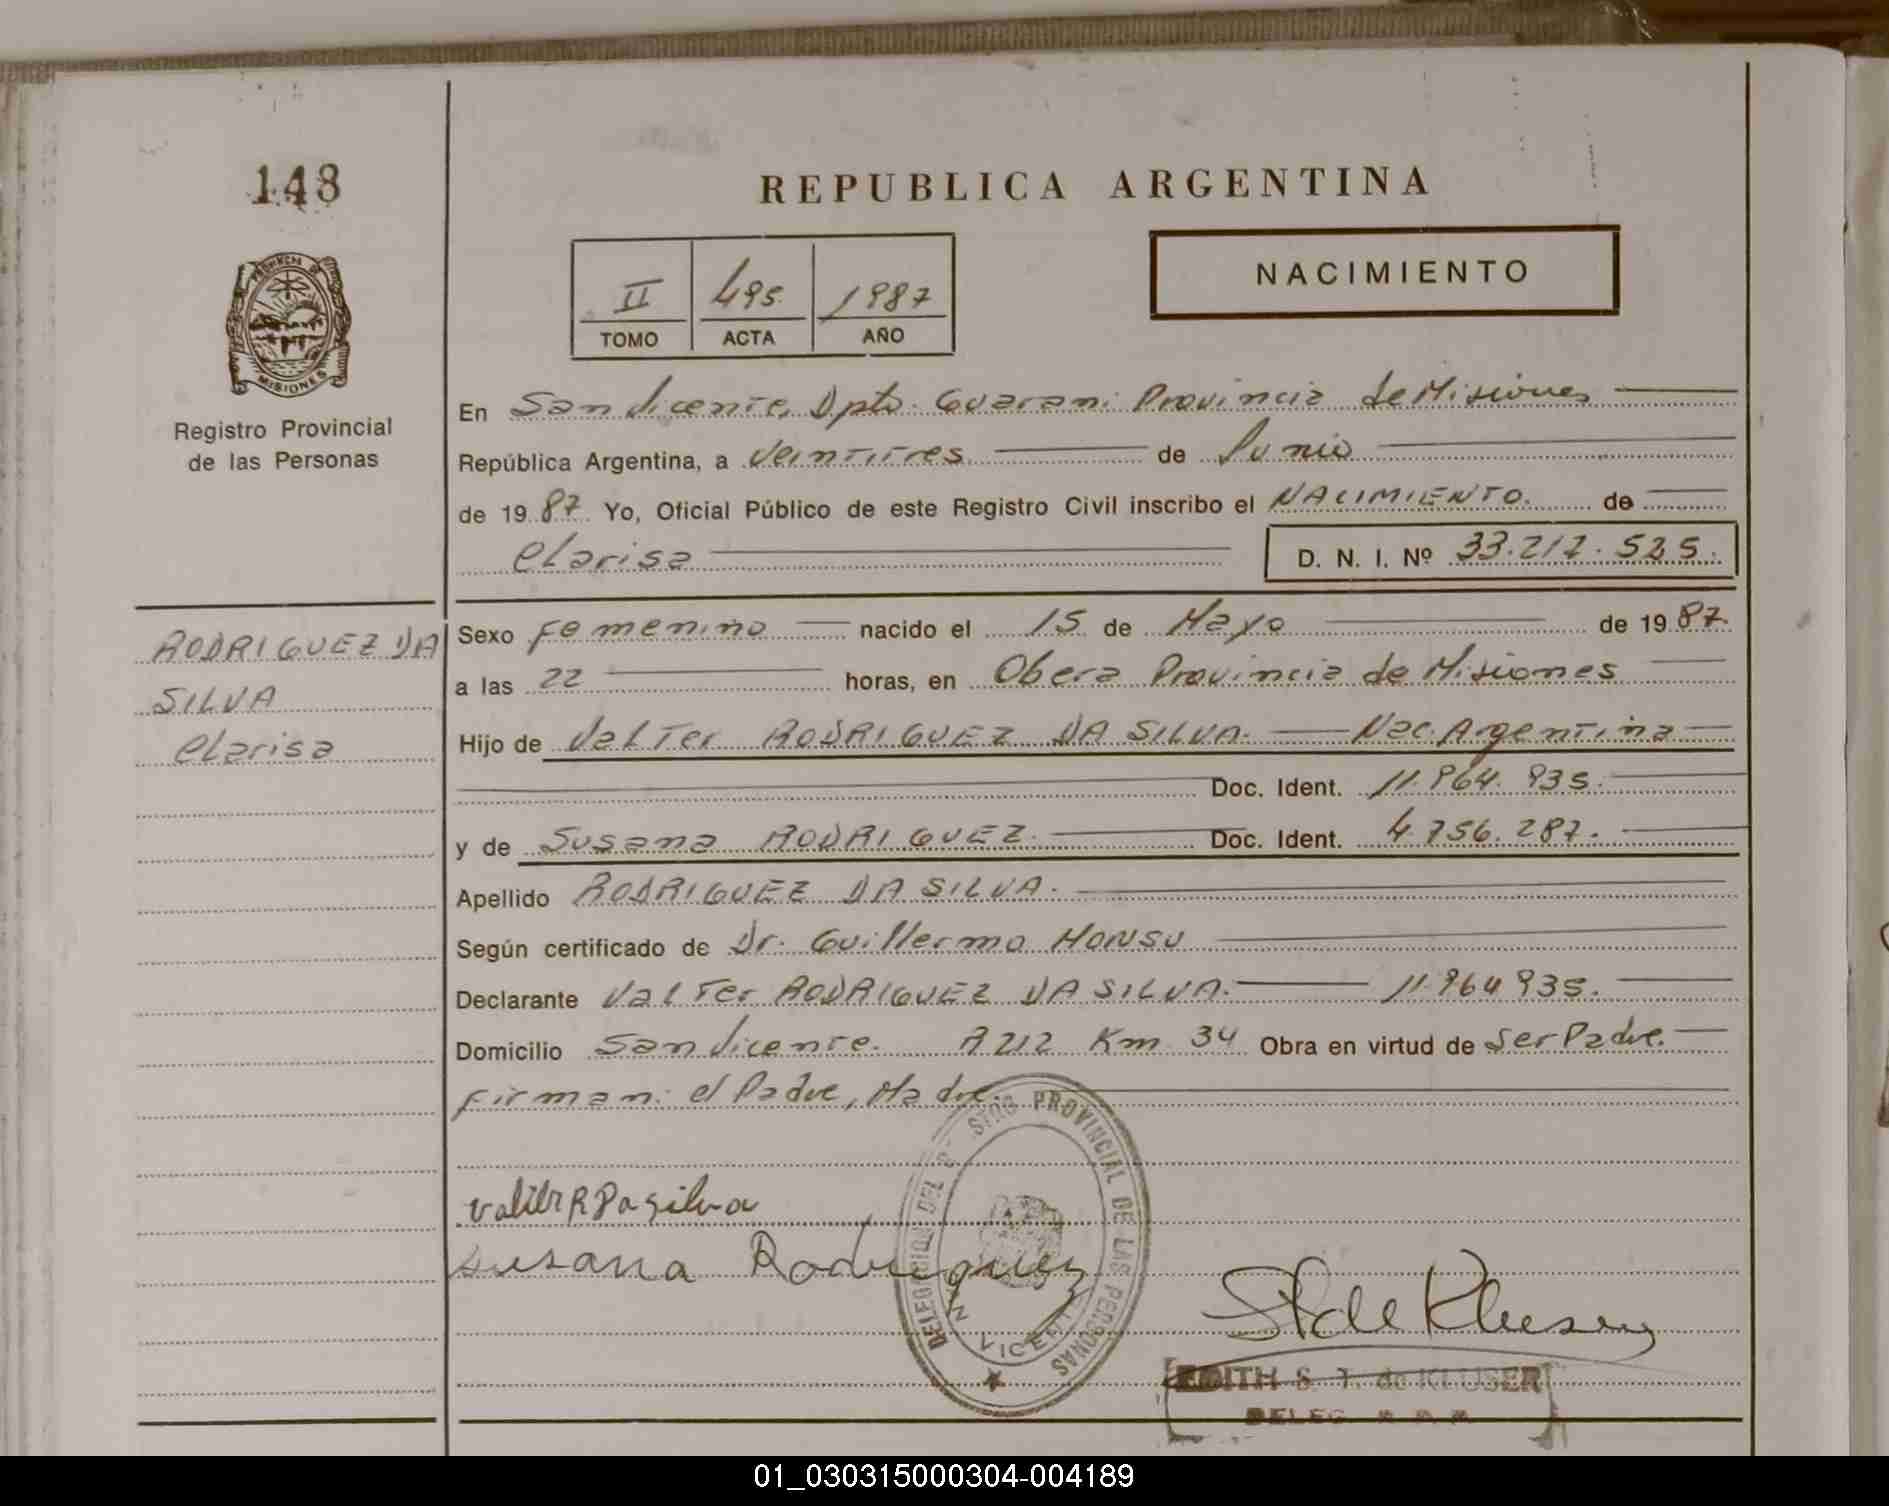 148
REPUBLICA ARGENTINA
PROVINCIA DE
MISIONES
Registro Provincial
de las Personas
II 495 1987
TOMO ACTA AÑO
NACIMIENTO
En San Vicente, Dpto. Guarani Provincia de Misiones
República Argentina, a Veintitres de Junio
de 1987 Yo, Oficial Público de este Registro Civil inscribo el NACIMIENTO. de
Clarisa D. N. I. Nº 33.212.525.
RODRIGUEZ DA
SILVA
Clarisa
Sexo Femenino nacido el 15 de Mayo de 1987.
a las 22 horas, en Obera Provincia de Misiones
Hijo de Valter RODRIGUEZ DA SILVA. Nac. Argentina
Doc. Ident. 11.964.935.
y de Susana RODRIGUEZ. Doc. Ident. 4.756.287.
Apellido RODRIGUEZ DA SILVA.
Según certificado de Dr. Guillermo HONSU
Declarante Valter RODRIGUEZ DA SILVA. 11.964935.
Domicilio San Vicente. R212 Km 34 Obra en virtud de Ser Padre.
Firman: el Padre, Madre.
Valter R Da silva
Susana Rodriguez
DELEGACION DEL REGISTRO PROVINCIAL DE LAS PERSONAS
SAN VICENTE
EDITH S. T. de KLUSER
DELEG
01_030315000304-004189